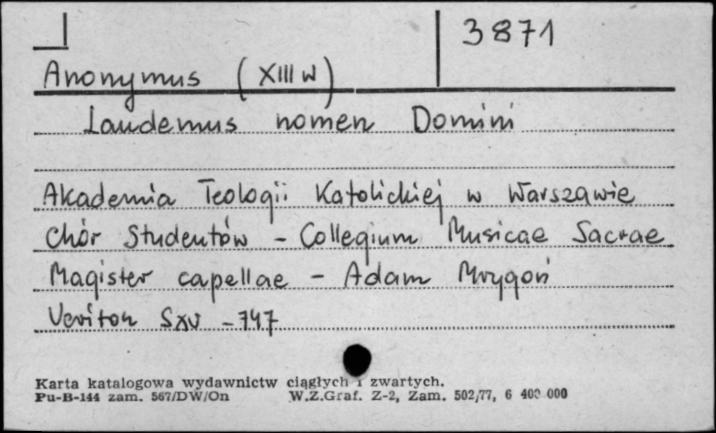 3871
Anonymus (XIII w)
Laudemus nomen Domini
Akademia Teologii Katolickiej w Warszawie
Chór Studentów - Collegium Musicae Sacrae
Magister capellae - Adam Mrygoń
Veriton SXV - 747
Karta katalogowa wydawnictw ciągłych i zwartych.
Pu-B-144 zam. 567/DW/On W.Z.Graf. Z-2, Zam. 502/77, 6 400 000